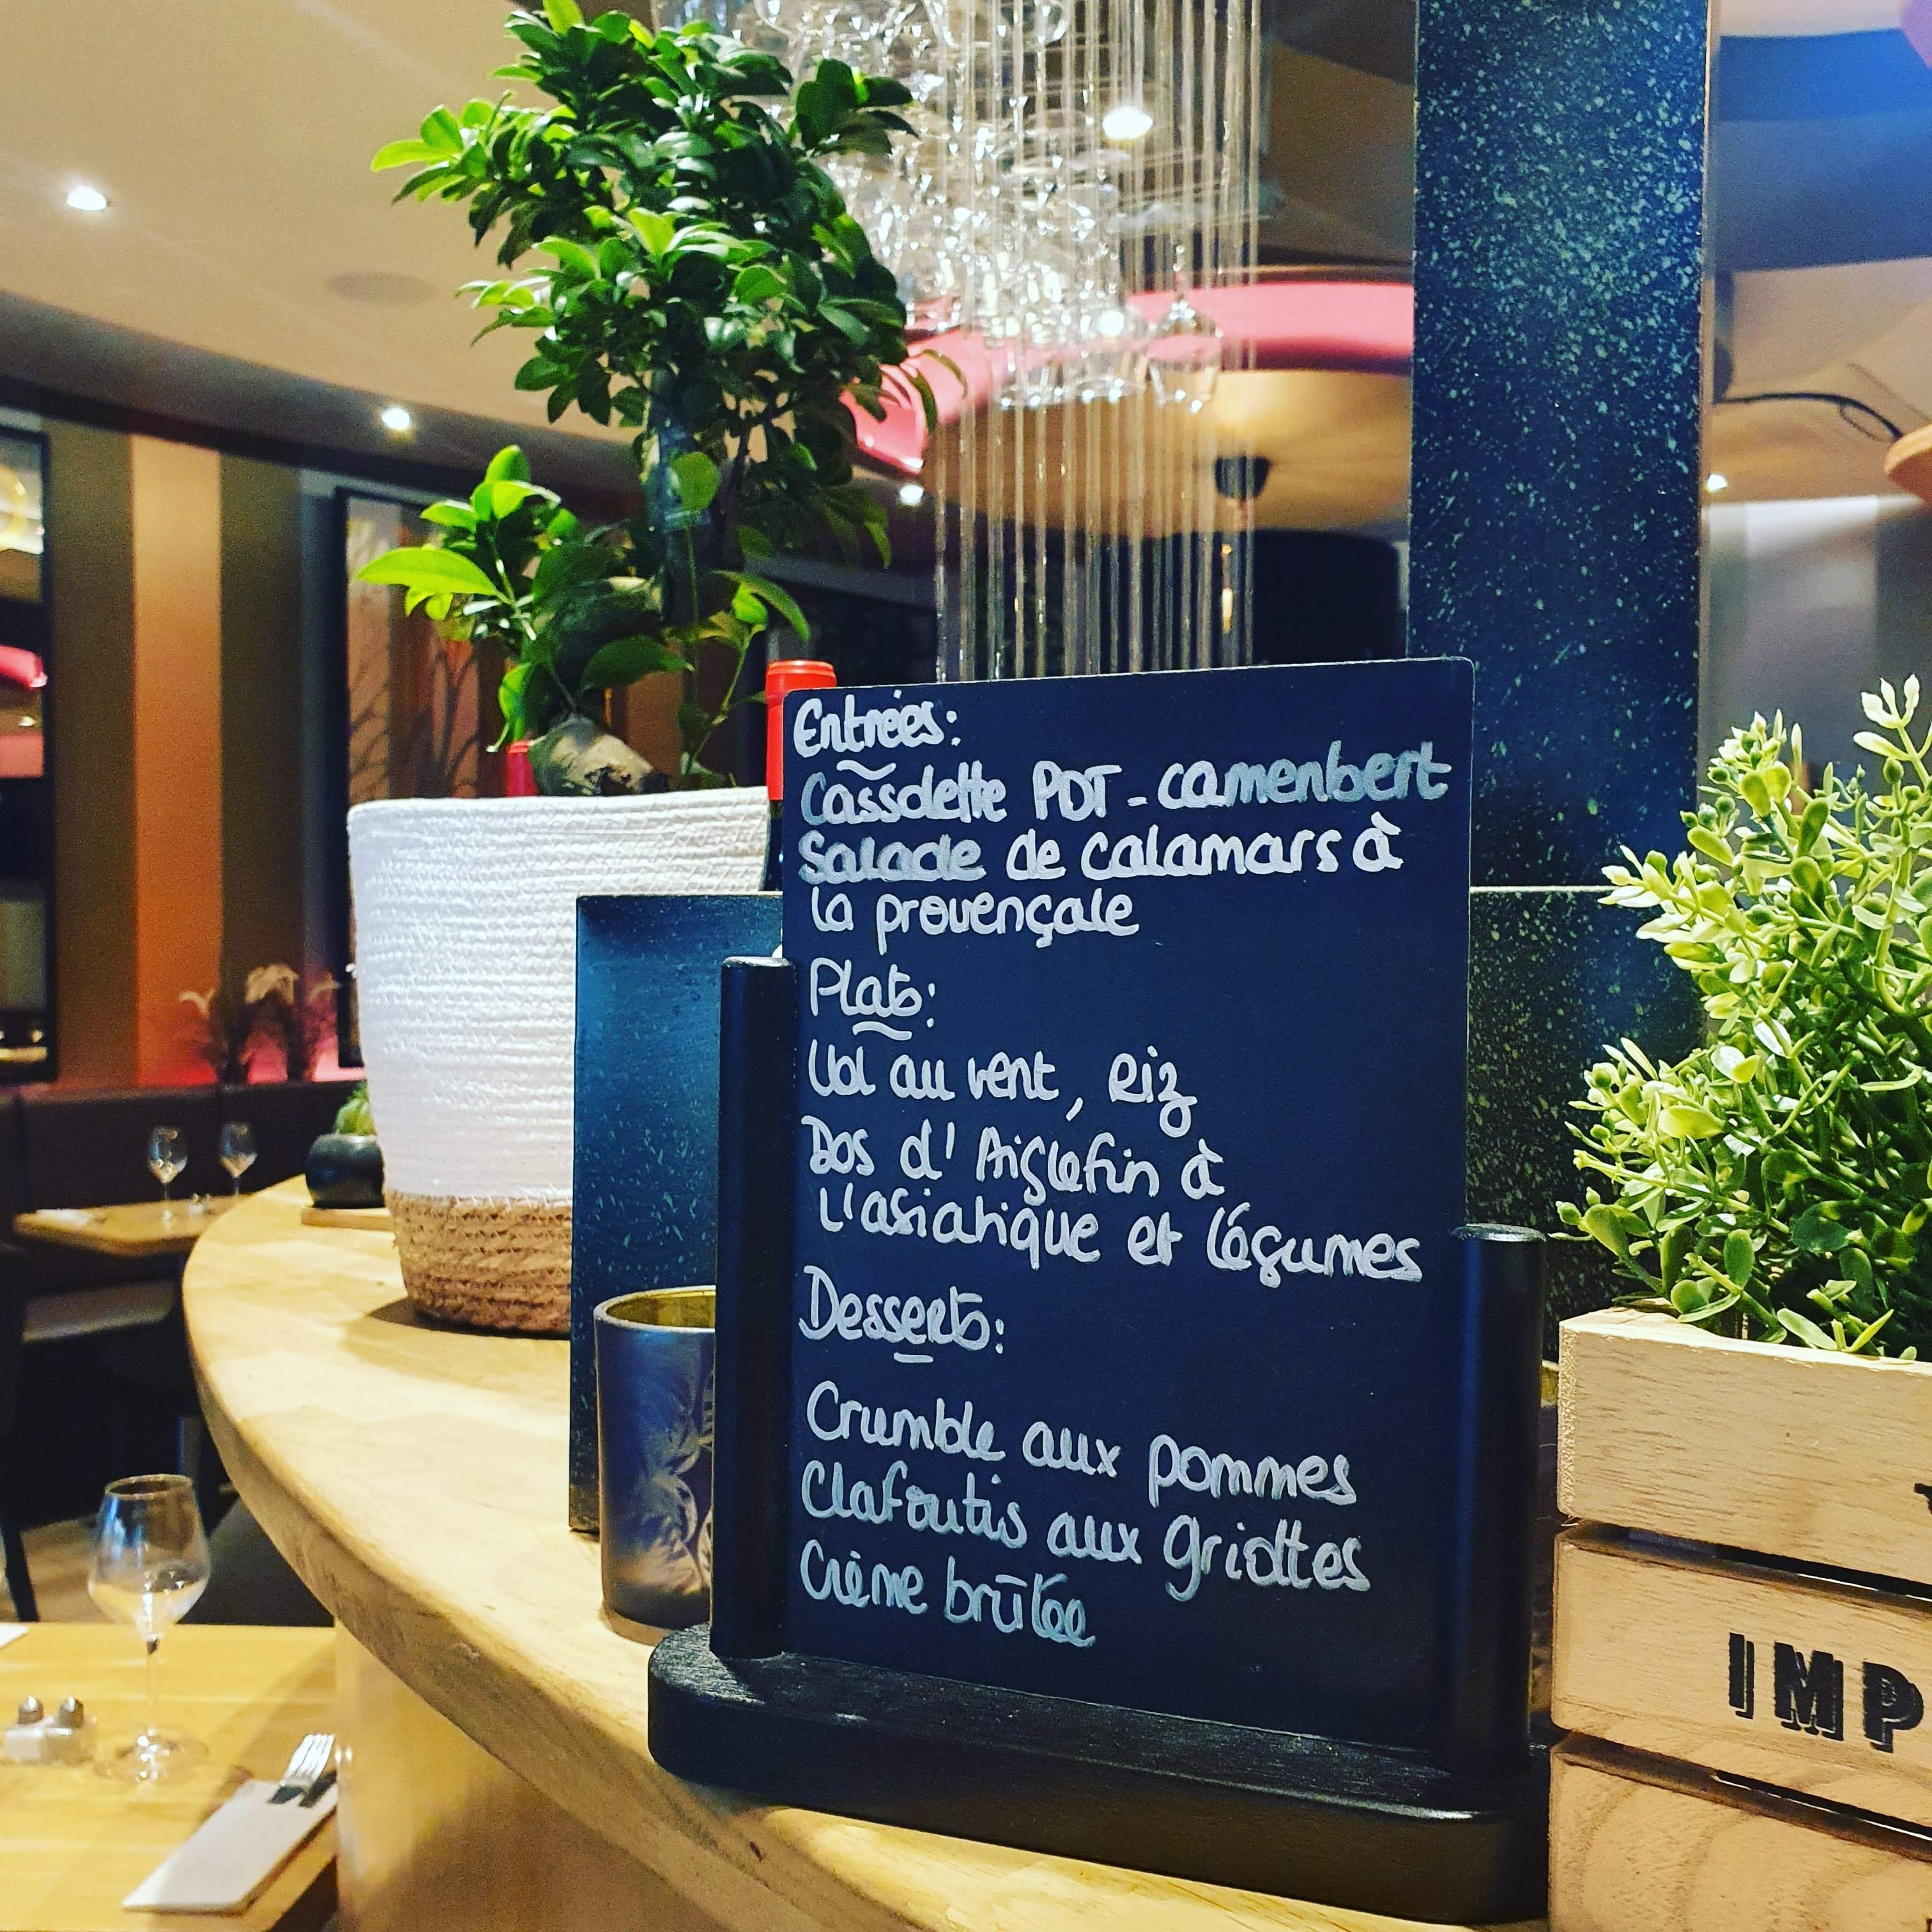 Entrées:
Cassolette PDT - camenbert
Salade de calamars à
la provençale
Plats:
Vol au vent, Riz
Dos d'Aiglefin à
l'asiatique et légumes
Desserts:
Crumble aux pommes
Clafoutis aux griottes
Crème brûlée
IMP